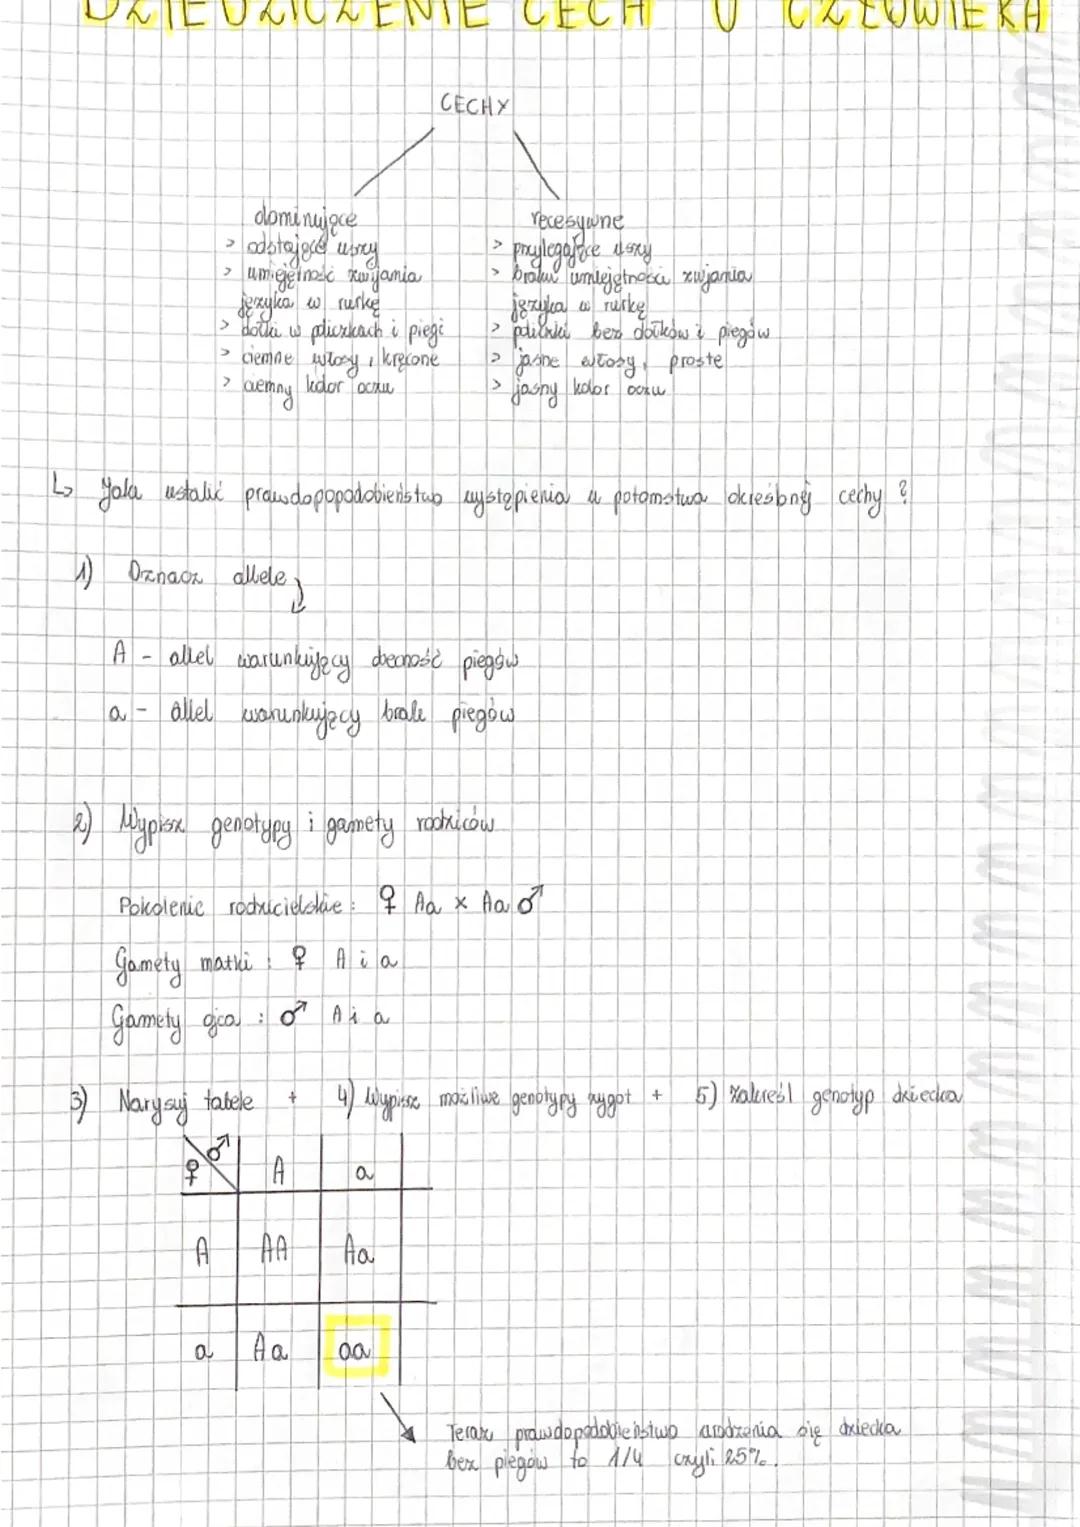 DZIEDZICZENIE CECH U CZŁOWIEKA
CECHY
dominujące
> odstające uszy
> umiejętność zwijania
języka w rurkę
> dołki w policzkach i piegi
> ciemne włosy, kręcone
> ciemny kolor oczu
recesywne
> przylegające uszy
> braku umiejętności zwijania
języka w rurkę
> policzki bez dołków i piegów
> jasne włosy, proste
> jasny kolor oczu
↳ Jak ustalić prawdopopodobieństwo wystąpienia u potomstwa określonej cechy?
1) Oznacz allele
A - allel warunkujący obecność piegów
a - allel warunkujący brak piegów
2) Wypisz genotypy i gamety rodziców
Pokolenie rodzicielskie: ♀ Aa x Aa ♂
Gamety matki: ♀ A i a
Gamety ojca: ♂ A i a
3) Narysuj tabele + 4) Wypisz możliwe genotypy zygot + 5) Zakreśl genotyp dziecka
♀ ♂ A a
A AA Aa
a Aa aa
Teraz prawdopodobieństwo urodzenia się dziecka
bez piegów to 1/4 czyli 25%.